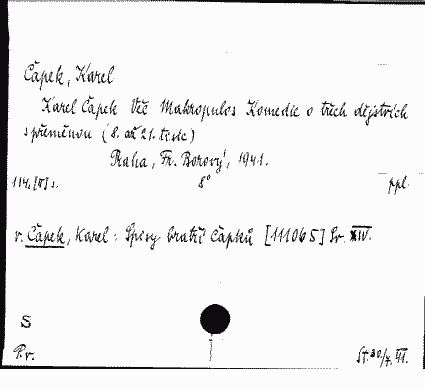 Čapek, Karel
Karel Čapek Věc Makropulos Komedie o třech dějstvích
s přeměnou (8. až 21. tisíc)
Praha, Fr. Borový, 1941.
114, [II] s. 8° ppl.
v. Čapek, Karel: Spisy bratří Čapků [111065] Sv. XIV.
S
P. v. St. 30/7. 41.